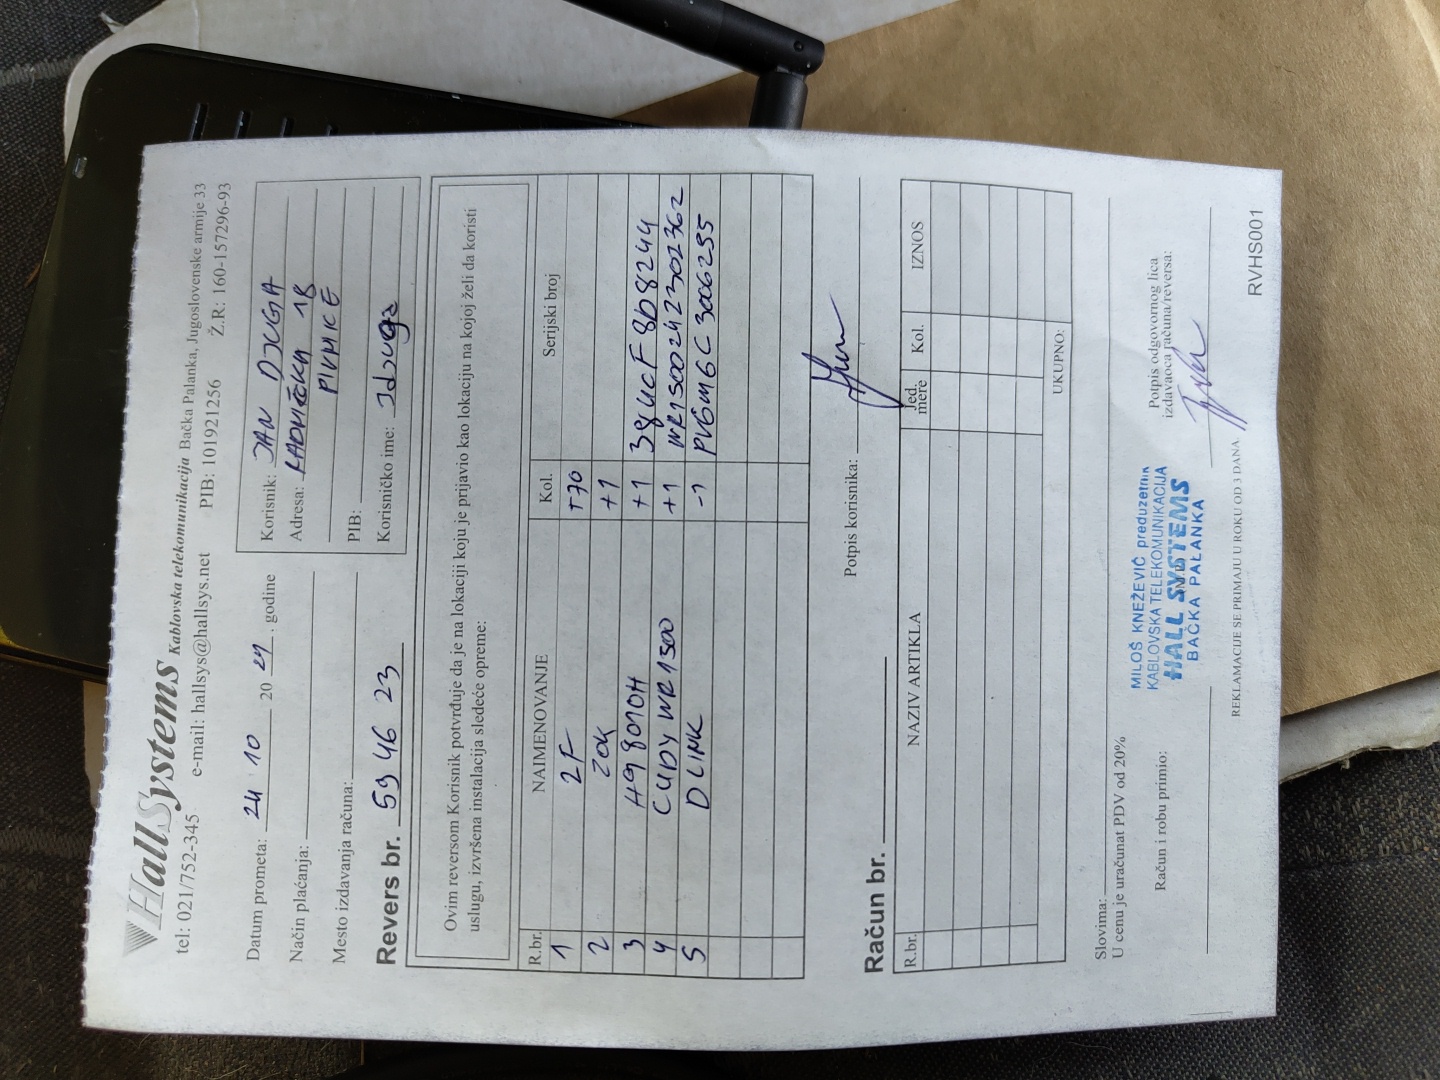 HallSystems Kablovska telekomunikacija Bačka Palanka, Jugoslovenske armije 33
tel: 021/752-345 e-mail: hallsys@hallsys.net PIB: 101921256 Ž.R: 160-157296-93
Datum prometa: 24 10 20 24 . godine
Način plaćanja:
Mesto izdavanja računa:
Revers br. 59 46 23
Korisnik: JAN DJUGA
Adresa: RADNIČKA 18
PIVNICE
PIB:
Korisničko ime: Jdjuga
Ovim reversom Korisnik potvrđuje da je na lokaciji koju je prijavio kao lokaciju na kojoj želi da koristi
uslugu, izvršena instalacija sledeće opreme:
R.br. NAIMENOVANJE Kol. Serijski broj
1 2F +70
2 ZOK +1
3 H9 8010H +1 384UCF8D8244
4 CUDY WR1300 +1 WR1300242302362
5 D LINK -1 PVGM6C3006255
Potpis korisnika:
Račun br.
R.br. NAZIV ARTIKLA Jed. mere Kol. IZNOS
UKUPNO:
Slovima:
U cenu je uračunat PDV od 20%
Račun i robu primio:
MILOŠ KNEŽEVIĆ preduzetnik
KABLOVSKA TELEKOMUNIKACIJA
HALL SYSTEMS
BAČKA PALANKA
Potpis odgovornog lica
izdavaoca računa/reversa:
REKLAMACIJE SE PRIMAJU U ROKU OD 3 DANA
RVHS001